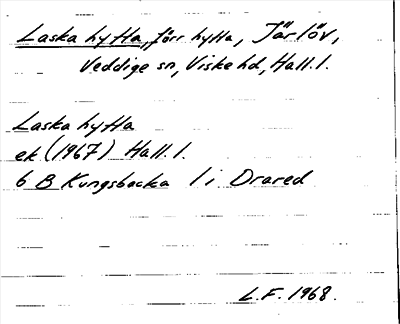 Laska hytta, förr hytta, Järlöv,
Veddige sn, Viske hd, Hall. l.
Laska hytta
ek (1967) Hall. l.
6 B Kungsbacka 1 i Drared
L.F. 1968.